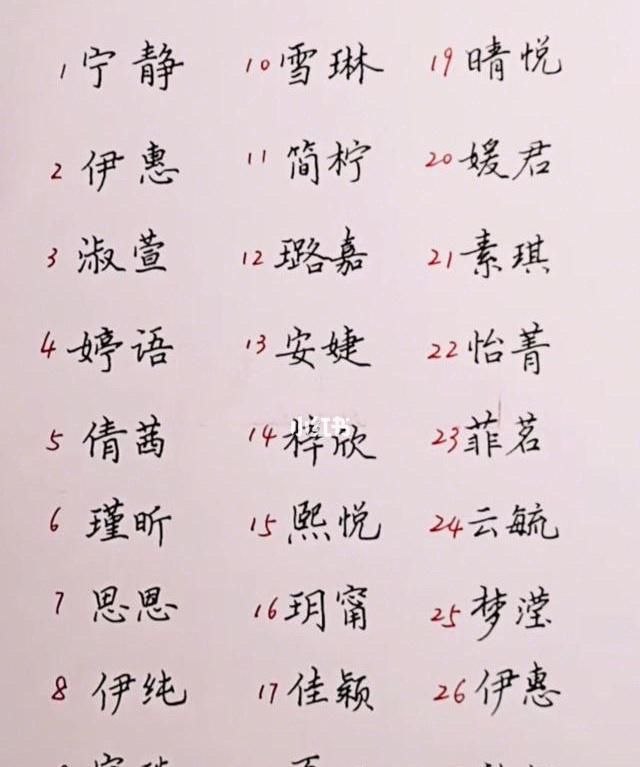 1 宁静 10 雪琳 19 晴悦
2 伊惠 11 简柠 20 媛君
3 淑萱 12 璐嘉 21 素琪
4 婷语 13 安婕 22 怡菁
5 倩茜 14 梓欣 23 菲茗
小红书
6 瑾昕 15 熙悦 24 云毓
7 思思 16 玥甯 25 梦滢
8 伊纯 17 佳颖 26 伊惠